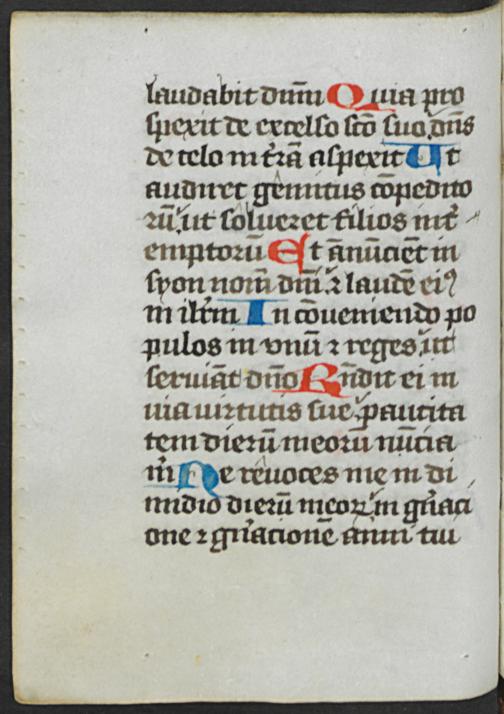 laudabit dn̄m Quia pro
spexit de excelso sc̄o suo, dn̄s
de celo in tr̄ā aspexit Ut
audiret gemitus cōpedito
rū, ut solveret filios int̄
emptorū Et ānūciēt in
syon nom̄ dnī ⁊ laudē eiꝰ
in ilrl̄m In cōveniendo po
pulos in vnū ⁊ reges, ut
serviāt dn̄o Rn̄dit ei in
via uirtutis sue, paucita
tem dierū meorū nūcia
m̄ Ne revoces me in di
midio dierū meoꝝ, in gn̄aci
one ⁊ gn̄acionē anni tui